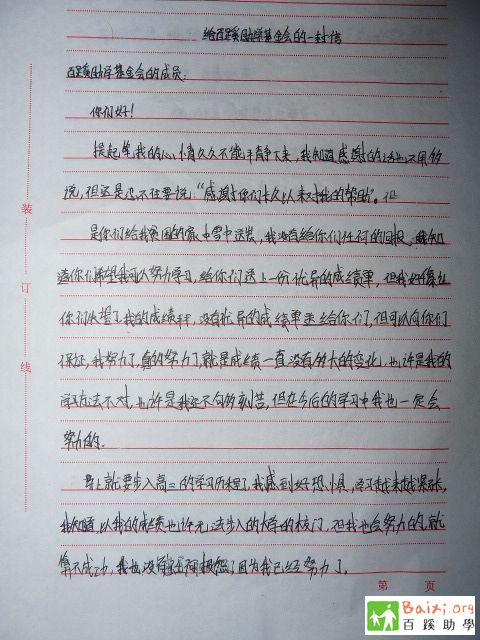 给百蹊助学基金会的一封信
百蹊助学基金会的成员:
你们好!
提起笔我的心情久久不能平静下来,我知道感谢的话也不用多
说,但还是忍不住要说:“感谢你们长久以来对我的帮助”。但
是你们给我贫困的家中雪中送炭,我没有给你们任何的回报,我知
道你们希望我可以努力学习,给你们送上一份优异的成绩单,但我好像让
你们失望了我的成绩并没有优异的成绩单至给你们,但可以向你们
保证,我努力了,真的努力了,就是成绩一直没有多大的变化,也许是我的
学习方法不对,也许是我还不向够刻苦,但在今后的学习中我也一定会
努力的.
马上就要步入高三的学习历程了,我感到好恐惧,学习越来越紧张,
我知道,以我的成绩也许无法步入的大学的校门,但我也会努力的,就
算不成功,我也没有遗憾了因为我已经努力了。
装
订
线
第 页
Baixi.org
百蹊助學